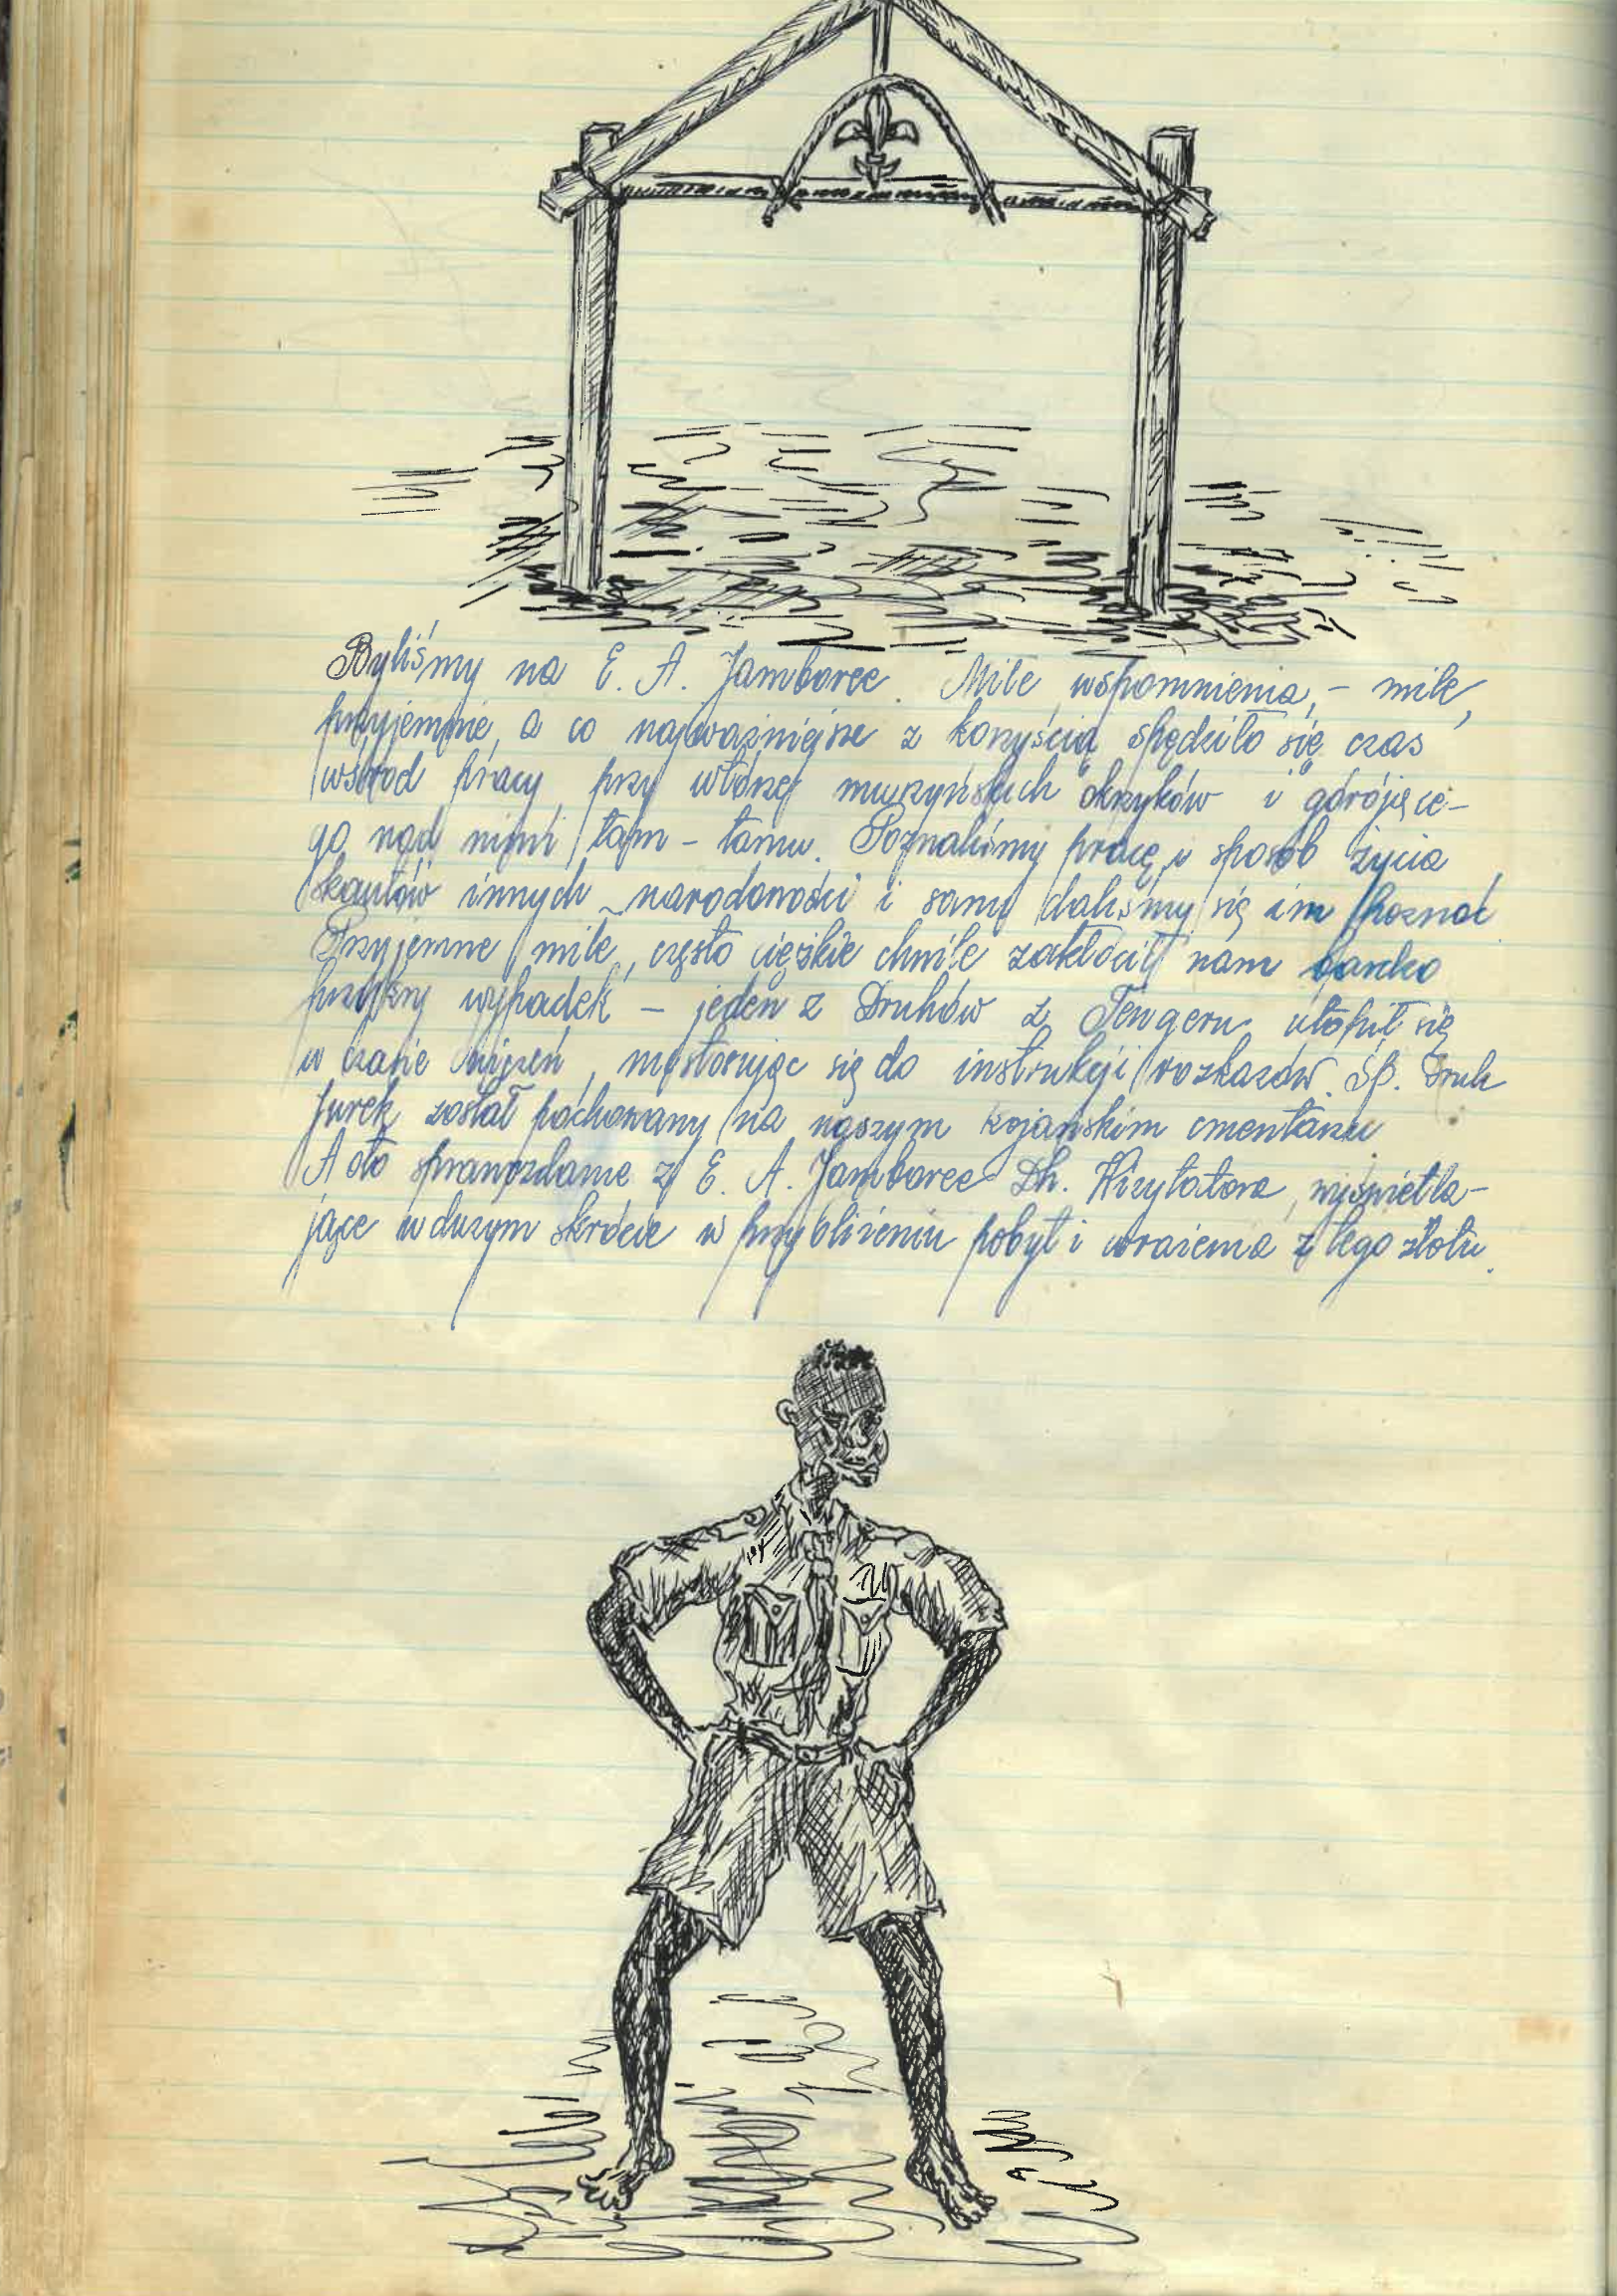 Byliśmy na E. A. Jamboree. Miłe wspomnienia, – miłe,
przyjemnie, a co najważniejsze z korzyścią spędziło się czas
wśród pracy, przy wtórze murzyńskich okrzyków i górójące-
go nad nimi tam – tamu. Poznaliśmy pracę i sposób życia
skautów innych narodowości i sami daliśmy się im poznać
Przyjemne, miłe, często ciężkie chwile zakłócił nam bardzo
przykry wypadek – jeden z Druhów z Tengeru utopił się
w czasie ćwiczeń, niestosując się do instrukcji rozkazów. Śp. Druh
Jurek został pochowany na naszym kojańskim cmentarzu
A oto sprawozdanie z E. A. Jamboree Dh. Wizytatora, wyświetla-
jące w dużym skrócie w przybliżeniu pobyt i wrażenia z tego zlotu.